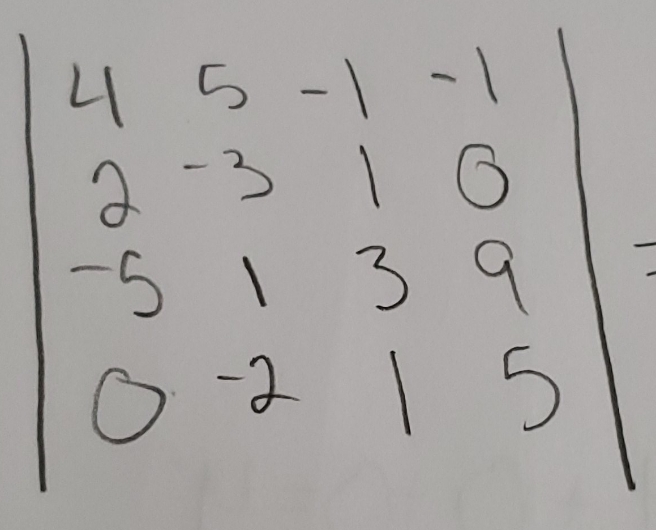 | 4 5 -1 -1 |
| 2 -3 1 0 |
| -5 1 3 9 | =
| 0 -2 1 5 |